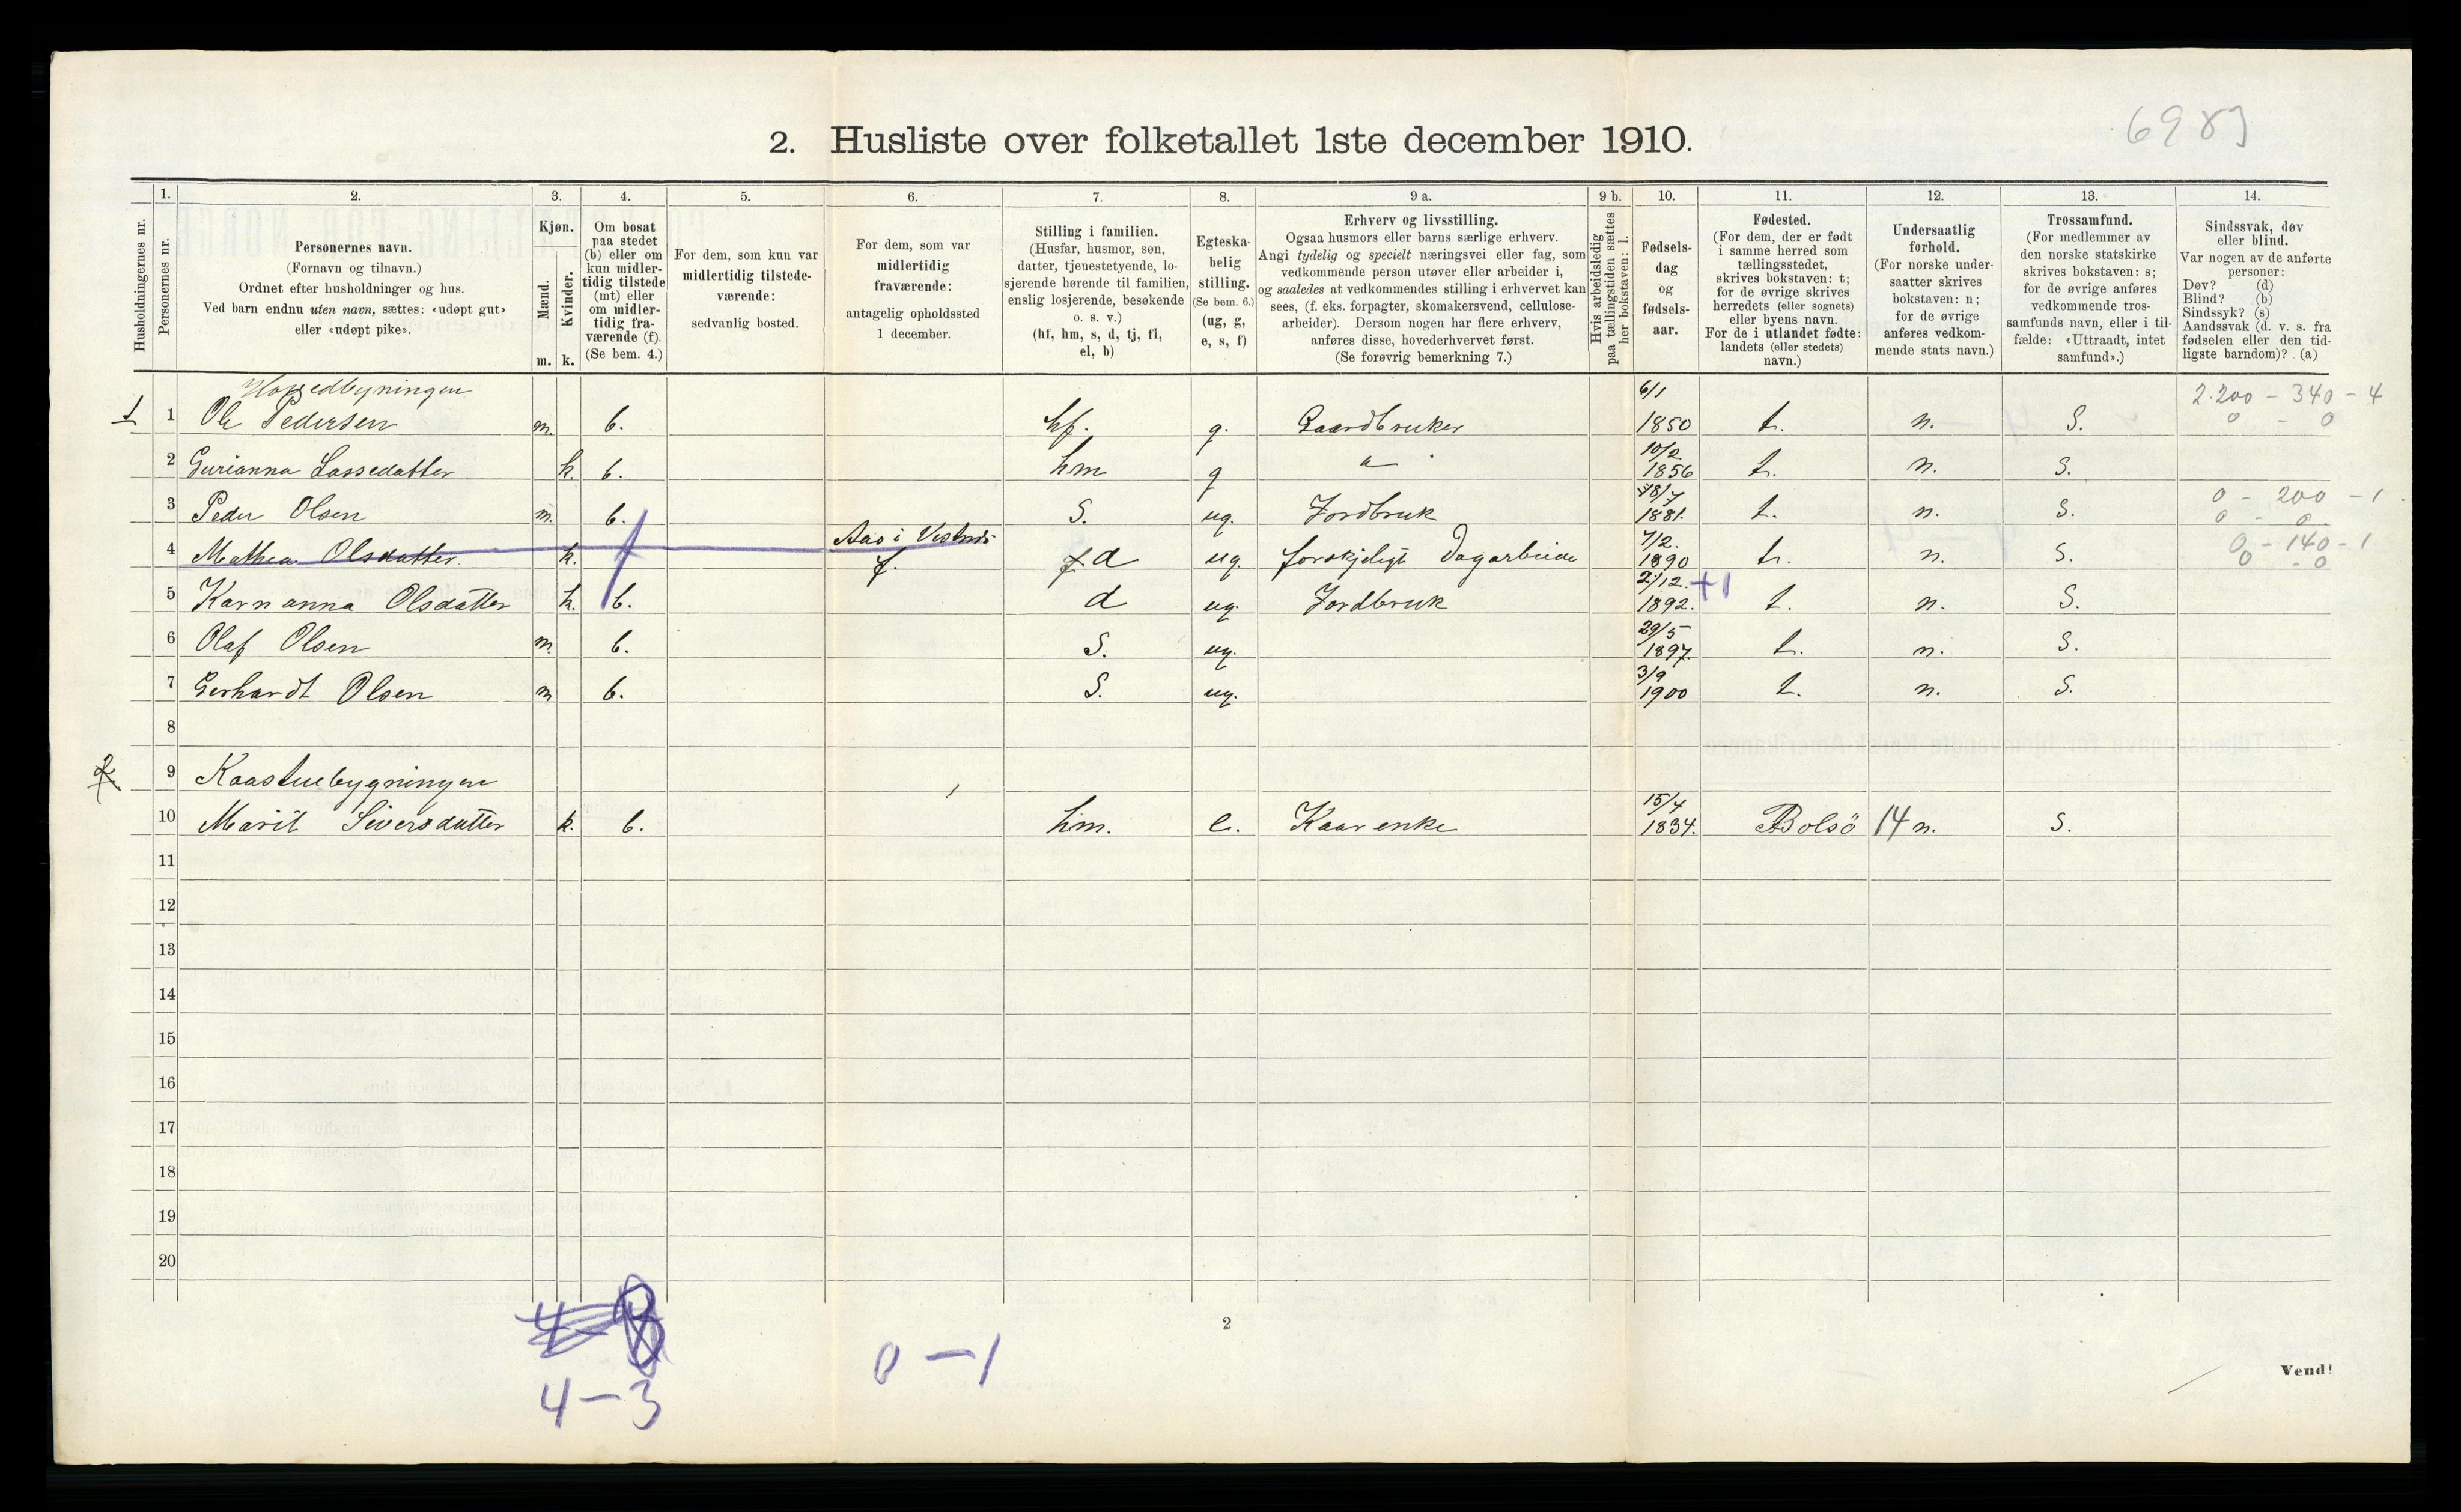 6983
2. Husliste over folketallet 1ste december 1910.
Husholdningernes nr.
1.
Personernes nr.
2.
Personernes navn.
(Fornavn og tilnavn.)
Ordnet efter husholdninger og hus.
Ved barn endnu uten navn, sættes: «udøpt gut»
eller «udøpt pike».
3.
Kjøn.
Mænd.
m.
Kvinder.
k.
4.
Om bosat
paa stedet
(b) eller om
kun midler-
tidig tilstede
(mt) eller
om midler-
tidig fra-
værende (f).
(Se bem. 4.)
5.
For dem, som kun var
midlertidig tilstede-
værende:
sedvanlig bosted.
6.
For dem, som var
midlertidig
fraværende:
antagelig opholdssted
1 december.
7.
Stilling i familien.
(Husfar, husmor, søn,
datter, tjenestetyende, lo-
sjerende hørende til familien,
enslig losjerende, besøkende
o. s. v.)
(hf, hm, s, d, tj, fl,
el, b)
8.
Egteska-
belig
stilling.
(Se bem. 6.)
(ug, g,
e, s, f)
9 a.
Erhverv og livsstilling.
Ogsaa husmors eller barns særlige erhverv.
Angi tydelig og specielt næringsvei eller fag, som
vedkommende person utøver eller arbeider i,
og saaledes at vedkommendes stilling i erhvervet kan
sees, (f. eks. forpagter, skomakersvend, cellulose-
arbeider). Dersom nogen har flere erhverv,
anføres disse, hovederhvervet først.
(Se forøvrig bemerkning 7.)
9 b.
Hvis arbeidsledig
paa tællingstiden sættes
her bokstaven: l.
10.
Fødsels-
dag
og
fødsels-
aar.
11.
Fødested.
(For dem, der er født
i samme herred som
tællingsstedet,
skrives bokstaven: t;
for de øvrige skrives
herredets (eller sognets)
eller byens navn.
For de i utlandet fødte:
landets (eller stedets)
navn.)
12.
Undersaatlig
forhold.
(For norske under-
saatter skrives
bokstaven: n;
for de øvrige
anføres vedkom-
mende stats navn.)
13.
Trossamfund.
(For medlemmer av
den norske statskirke
skrives bokstaven: s;
for de øvrige anføres
vedkommende tros-
samfunds navn, eller i til-
fælde: «Uttraadt, intet
samfund».)
14.
Sindssvak, døv
eller blind.
Var nogen av de anførte
personer:
Døv? (d)
Blind? (b)
Sindssyk? (s)
Aandssvak (d. v. s. fra
fødselen eller den tid-
ligste barndom)? (a)
Hovedbyningen 6/1 2.200 - 340 - 4
1 1 Ole Pedersen m. b. hf. g. Gaardbruker 1850 t. n. S. 0 - 0
2 Gurianna Lassedatter k. b. hm g 10/2 1856 t. n. S.
3 Peder Olsen m. b. S. ug. Jordbruk 18/7 1881. t. n. S. 0 - 200 - 1
0 - 0.
4 Mathea Olsdatter k. Aas i Vestnes f. d ug. forskjeligt Dagarbeide 7/2. 1890 t. n. S. 0 - 140 - 1
0 - 0
5 Karnanna Olsdatter k. b. d ug. Jordbruk 2/12. 1892. +1 t. n. S.
6 Olaf Olsen m. b. S. ug. 29/5 1897. t. n. S.
7 Gerhardt Olsen m b. S. ug. 3/9 1900 t. n. S.
8
2 9 Kaastuebygningen
10 Marit Siversdatter k. b. hm. e. Kaarenke 15/4 1834. Bolsö 14 n. S.
11
12
13
14
15
16
17
18
19
20
2
0 - 1
4 - 3
Vend!